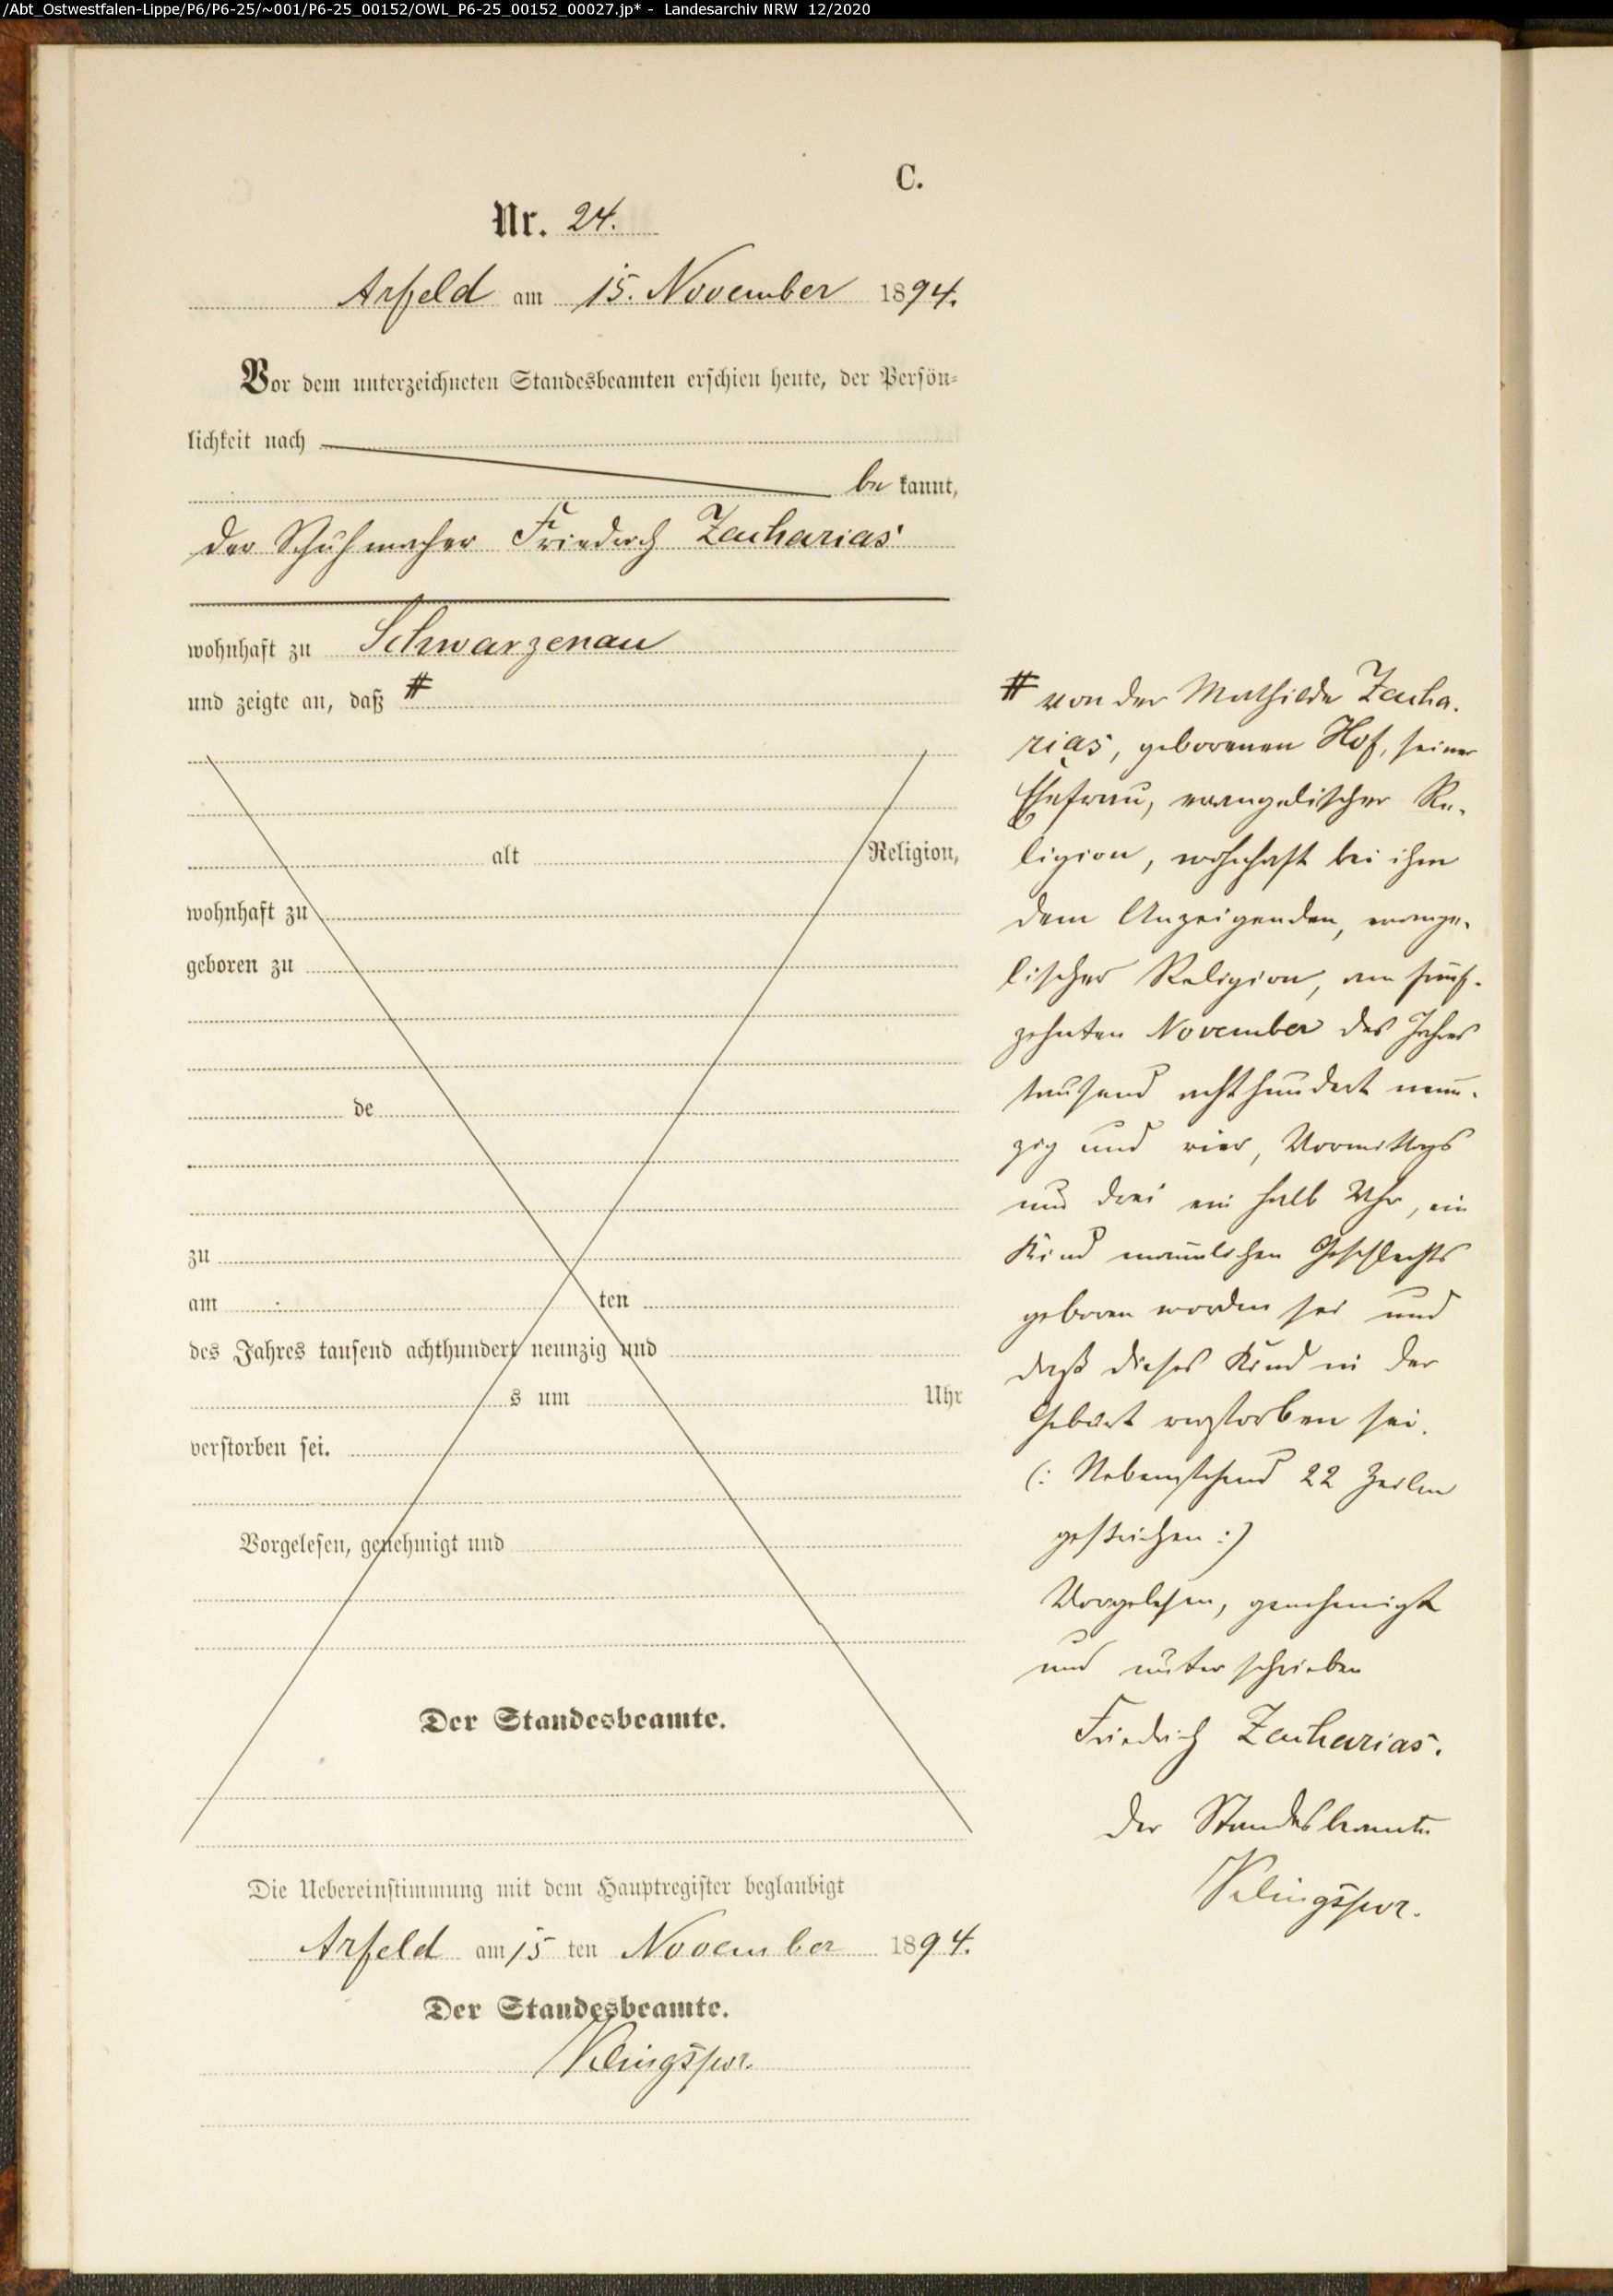 /Abt_Ostwestfalen-Lippe/P6/P6-25/~001/P6-25_00152/OWL_P6-25_00152_00027.jp* - Landesarchiv NRW 12/2020
C.
Nr. 24.
Arfeld am 15. November 1894.
Vor dem unterzeichneten Standesbeamten erschien heute, der Persön-
lichkeit nach
be kannt,
der Schuhmacher Friedrich Zacharias
wohnhaft zu Schwarzenau
und zeigte an, daß #
alt Religion,
wohnhaft zu
geboren zu
de
zu
am ten
des Jahres tausend achthundert neunzig und
s um Uhr
verstorben sei.
Vorgelesen, genehmigt und
Der Standesbeamte.
Die Uebereinstimmung mit dem Hauptregister beglaubigt
Arfeld am 15 ten November 1894.
Der Standesbeamte.
Klingspor.
# von der Mathilde Zacha-
rias, geborenen Hof, seiner
Ehefrau, evangelischer Re-
ligion, wohnhaft bei ihm
dem Anzeigenden, evange-
lischer Religion, am fünf-
zehnten November des Jahres
tausend achthundert neun-
zig und vier, Vormittags
um drei ein halb Uhr, ein
Kind männlichen Geschlechts
geboren worden sei und
daß dieses Kind in der
Geburt verstorben sei.
(: Nebenstehend 22 Zeilen
gestrichen :)
Vorgelesen, genehmigt
und unterschrieben
Friedrich Zacharias.
Der Standesbeamte
Klingspor.